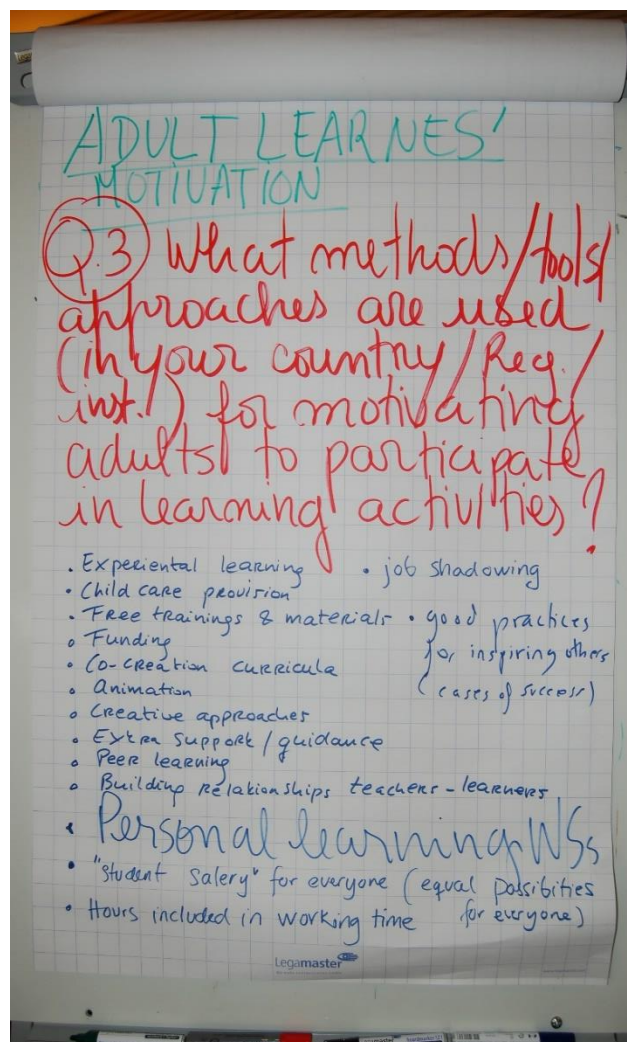 ADULT LEARNES'
MOTIVATION
Q.3 What methods/tools/
approaches are used
(in your country/Reg./
inst.) for motivating
adults to participate
in learning activities?
• Experiental learning
• Child care provision
• Free trainings & materials
• Funding
• Co-creation curricula
• Animation
• Creative approaches
• Extra support/guidance
• Peer learning
• Building relationships teachers - learners
• Personal learning WSs
• "Student salery" for everyone (equal possibities
for everyone)
• Hours included in working time
• job shadowing
• good practices
for inspiring others
(cases of success)
Legamaster